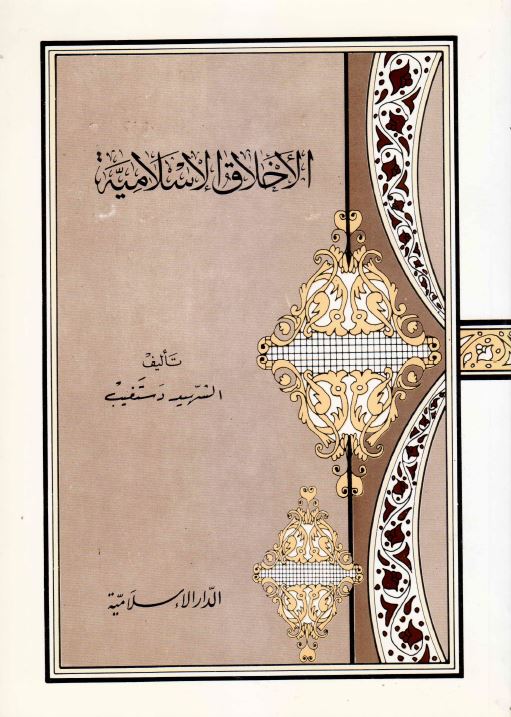 الأخلاق الإسلامية
تأليف
الشهيد دستغيب
الدار الإسلامية